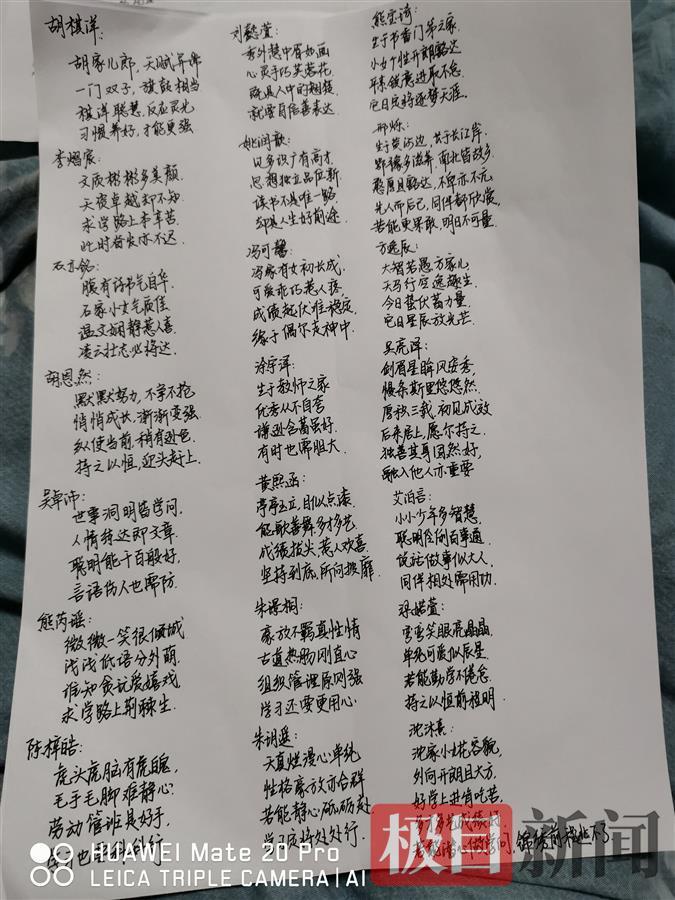 胡棋洋:
胡家儿郎,天赋异禀
一门双子,旗鼓相当
棋洋聪慧,反应灵光
习惯养好,才能更强
李煜宸:
文质彬彬多美颜
天资卓越却不知
求学路上本辛苦
此时奋发亦不迟
石亦铭:
腹有诗书气自华
石家小女气质佳
温文娴静惹人喜
凌云壮志必将达
胡恩然:
默默默努力,不争不抢
悄悄成长,渐渐变强
纵使当前,稍有逊色
持之以恒,迎头赶上.
吴卓沛:
世事洞明皆学问,
人情练达即文章
聪明能干百般好,
言语伤人也需防
熊芮瑶:
微微一笑很倾城
浅浅低语分外萌
谁知贪玩爱嬉戏
求学路上荆棘生.
陈梓皓:
虎头虎脑有虎魄,
毛手毛脚难静心
劳动管班是好手,
刘懿萱:
秀外慧中眉如画
心灵手巧笑莞花
既是人中的翘楚
就要自信善表达
姚润歆:
见多识广有高才
思想独立品位新
读书不是唯一路
却是人生好前途
冯可馨:
冯家有女初长成,
可爱乖巧惹人疼
成绩起伏难稳定,
缘于偶尔走神中.
涂宇洋:
生于教师之家
优秀从不自夸
谦逊含蓄虽好,
有时也需胆大.
黄熙函:
亭亭玉立,目似点漆
能歌善舞,多才多艺
成绩拔尖,惹人欢喜
坚持到底,所向披靡.
朱谋桐:
豪放不羁真性情
古道热肠刚直心
组织管理原则强
学习还要更用心.
朱玥遥:
天真烂漫心单纯
性格豪放亦合群
若能静心砥砺处
学习定将处处行.
熊宝琦:
生于书香门第之家,
小女个性开朗豁达
再来锐意进取不怠
它日定将逐梦天涯.
邢烁:
生于黄河边,长于长江岸.
鄂豫多滋养,南北皆故乡
憨厚且豁达,不卑亦不亢
先人而后己,同伴都欣赏,
若能更果敢,明日不可量.
方逸辰:
大智若愚方家儿
天马行空逸趣生
今日蛰伏蓄力量
它日星辰放光芒.
吴虎泽:
剑眉星眸风姿秀,
慢条斯里悠悠然.
厚积三载,初见成效
后来居上,愿尔持之
独善其身固然好,
融入他人亦重要
艾泊言:
小小少年多智慧,
聪明伶俐百事通
说话做事似大人,
同伴相处需用功.
梁媄萱:
弯弯笑眼亮晶晶.
单纯可爱似辰星
若能勤学不倦怠
持之以恒前程明.
沈沐熹:
沈家小女花容貌,
外向开朗且大方,
好学上进肯吃苦,
锦绣前程少不了
极目新闻
HUAWEI Mate 20 Pro
LEICA TRIPLE CAMERA | AI